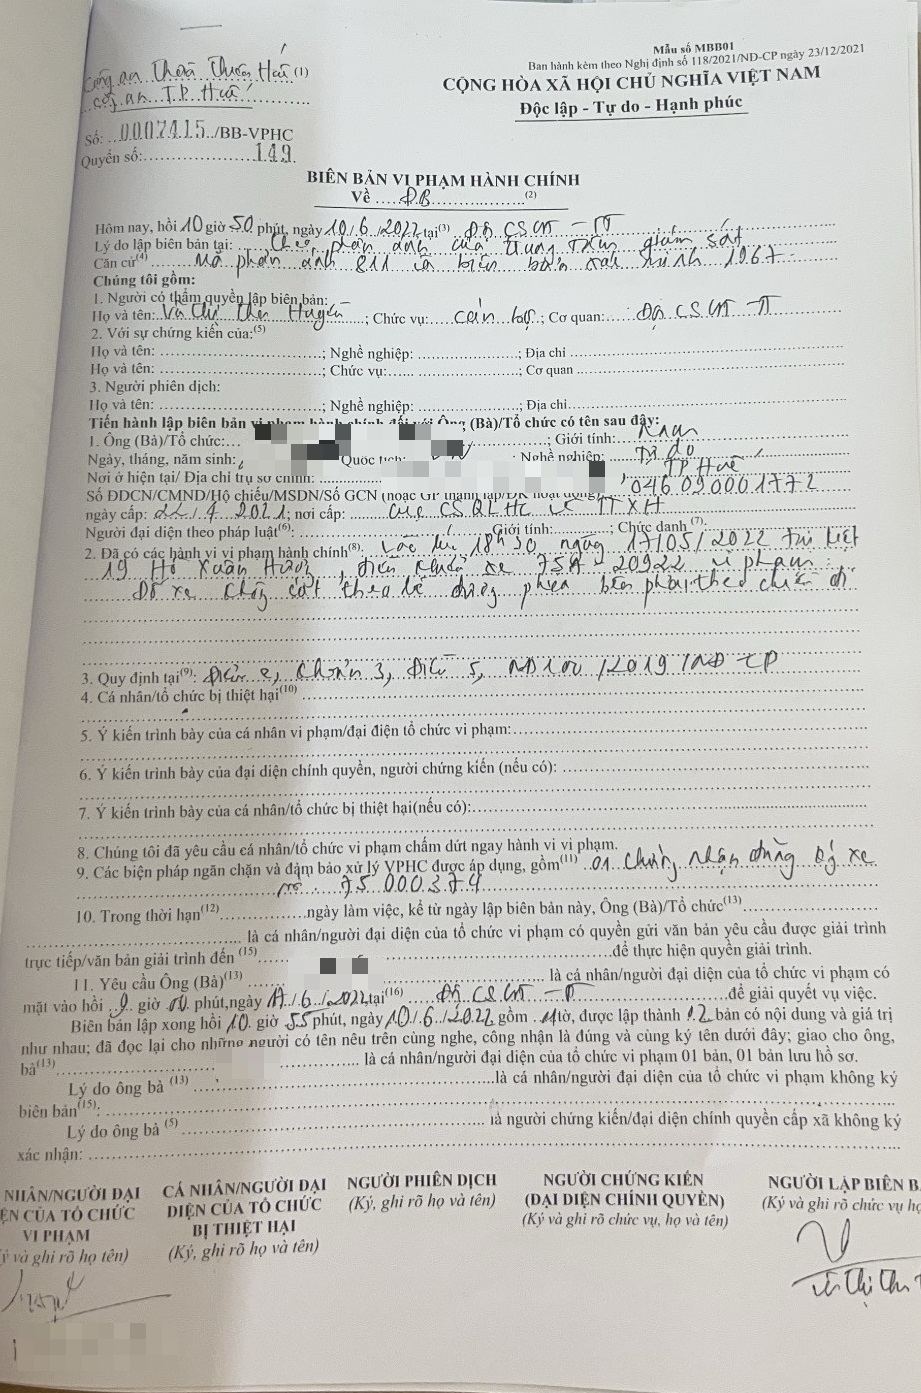 Mẫu số MBB01
Ban hành kèm theo Nghị định số 118/2021/NĐ-CP ngày 23/12/2021
Công an Thừa Thiên Huế (1)
công an T.P Huế
CỘNG HÒA XÃ HỘI CHỦ NGHĨA VIỆT NAM
Độc lập - Tự do - Hạnh phúc
Số: 0007415/BB-VPHC
Quyển số: 149.
BIÊN BẢN VI PHẠM HÀNH CHÍNH
Về ĐB (2)
Hôm nay, hồi 10 giờ 50 phút, ngày 10/6/2022 tại(3) Đội CSGT - TT
Lý do lập biên bản tại: Theo phản ánh của trung tâm giám sát
Căn cứ(4) Mã phản ánh 811 và biên bản xác minh 1967
Chúng tôi gồm:
1. Người có thẩm quyền lập biên bản:
Họ và tên: Thị; Chức vụ: cán bộ; Cơ quan: Đội CSGT - TT
2. Với sự chứng kiến của:(5)
Họ và tên: ; Nghề nghiệp: ; Địa chỉ
Họ và tên: ; Chức vụ: ; Cơ quan
3. Người phiên dịch:
Họ và tên: ; Nghề nghiệp: ; Địa chỉ
Tiến hành lập biên bản vi phạm hành chính đối với Ông (Bà)/Tổ chức có tên sau đây:
1. Ông (Bà)/Tổ chức: ; Giới tính: Nam
Ngày, tháng, năm sinh: Quốc tịch: ; Nghề nghiệp: Tự do
Nơi ở hiện tại/ Địa chỉ trụ sở chính: TP Huế
Số ĐDCN/CMND/Hộ chiếu/MSDN/Số GCN (hoặc GP thành lập/ĐK hoạt động) 046090001772
ngày cấp: 22/4/2021; nơi cấp: Cục CSQLHC về TTXH
Người đại diện theo pháp luật(6): Giới tính: ; Chức danh (7):
2. Đã có các hành vi vi phạm hành chính(8): Vào lúc 18h30 ngày 17/05/2022 tại kiệt
19 Hồ Xuân Hương, điều khiển xe 75A-20922 vi phạm:
Đỗ xe không sát theo lề đường phía bên phải theo chiều đi
3. Quy định tại(9): Điểm e, khoản 3, Điều 5, NĐ100/2019/NĐ-CP
4. Cá nhân/tổ chức bị thiệt hại(10)
5. Ý kiến trình bày của cá nhân vi phạm/đại điện tổ chức vi phạm:
6. Ý kiến trình bày của đại diện chính quyền, người chứng kiến (nếu có):
7. Ý kiến trình bày của cá nhân/tổ chức bị thiệt hại(nếu có):
8. Chúng tôi đã yêu cầu cá nhân/tổ chức vi phạm chấm dứt ngay hành vi vi phạm.
9. Các biện pháp ngăn chặn và đảm bảo xử lý VPHC được áp dụng, gồm(11) 01 chứng nhận đăng ký xe
75 000374
10. Trong thời hạn(12) ngày làm việc, kể từ ngày lập biên bản này, Ông (Bà)/Tổ chức(13)
là cá nhân/người đại diện của tổ chức vi phạm có quyền gửi văn bản yêu cầu được giải trình
trực tiếp/văn bản giải trình đến (15) để thực hiện quyền giải trình.
11. Yêu cầu Ông (Bà)(13) là cá nhân/người đại diện của tổ chức vi phạm có
mặt vào hồi 9 giờ 00 phút,ngày 17/6/2022 tại(16) Đội CSGT - TT để giải quyết vụ việc.
Biên bản lập xong hồi 10 giờ 55 phút, ngày 10/6/2022 gồm 1 tờ, được lập thành 02 bản có nội dung và giá trị
như nhau; đã đọc lại cho những người có tên nêu trên cùng nghe, công nhận là đúng và cùng ký tên dưới đây; giao cho ông,
bà(13) là cá nhân/người đại diện của tổ chức vi phạm 01 bản, 01 bản lưu hồ sơ.
Lý do ông bà (13) là cá nhân/người đại diện của tổ chức vi phạm không ký
biên bản(15):
Lý do ông bà (5) là người chứng kiến/đại diện chính quyền cấp xã không ký
xác nhận:
NHÂN/NGƯỜI ĐẠI
ỆN CỦA TỔ CHỨC
VI PHẠM
ý và ghi rõ họ tên)
CÁ NHÂN/NGƯỜI ĐẠI
DIỆN CỦA TỔ CHỨC
BỊ THIỆT HẠI
(Ký, ghi rõ họ và tên)
NGƯỜI PHIÊN DỊCH
(Ký, ghi rõ họ và tên)
NGƯỜI CHỨNG KIẾN
(ĐẠI DIỆN CHÍNH QUYỀN)
(Ký và ghi rõ chức vụ, họ và tên)
NGƯỜI LẬP BIÊN B
(Ký và ghi rõ chức vụ họ